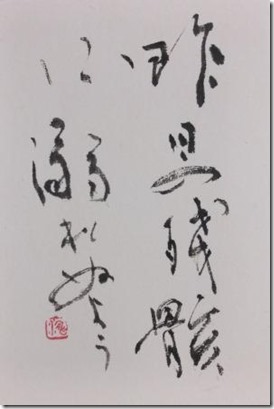 昨日の残骸
に溺れぬよう